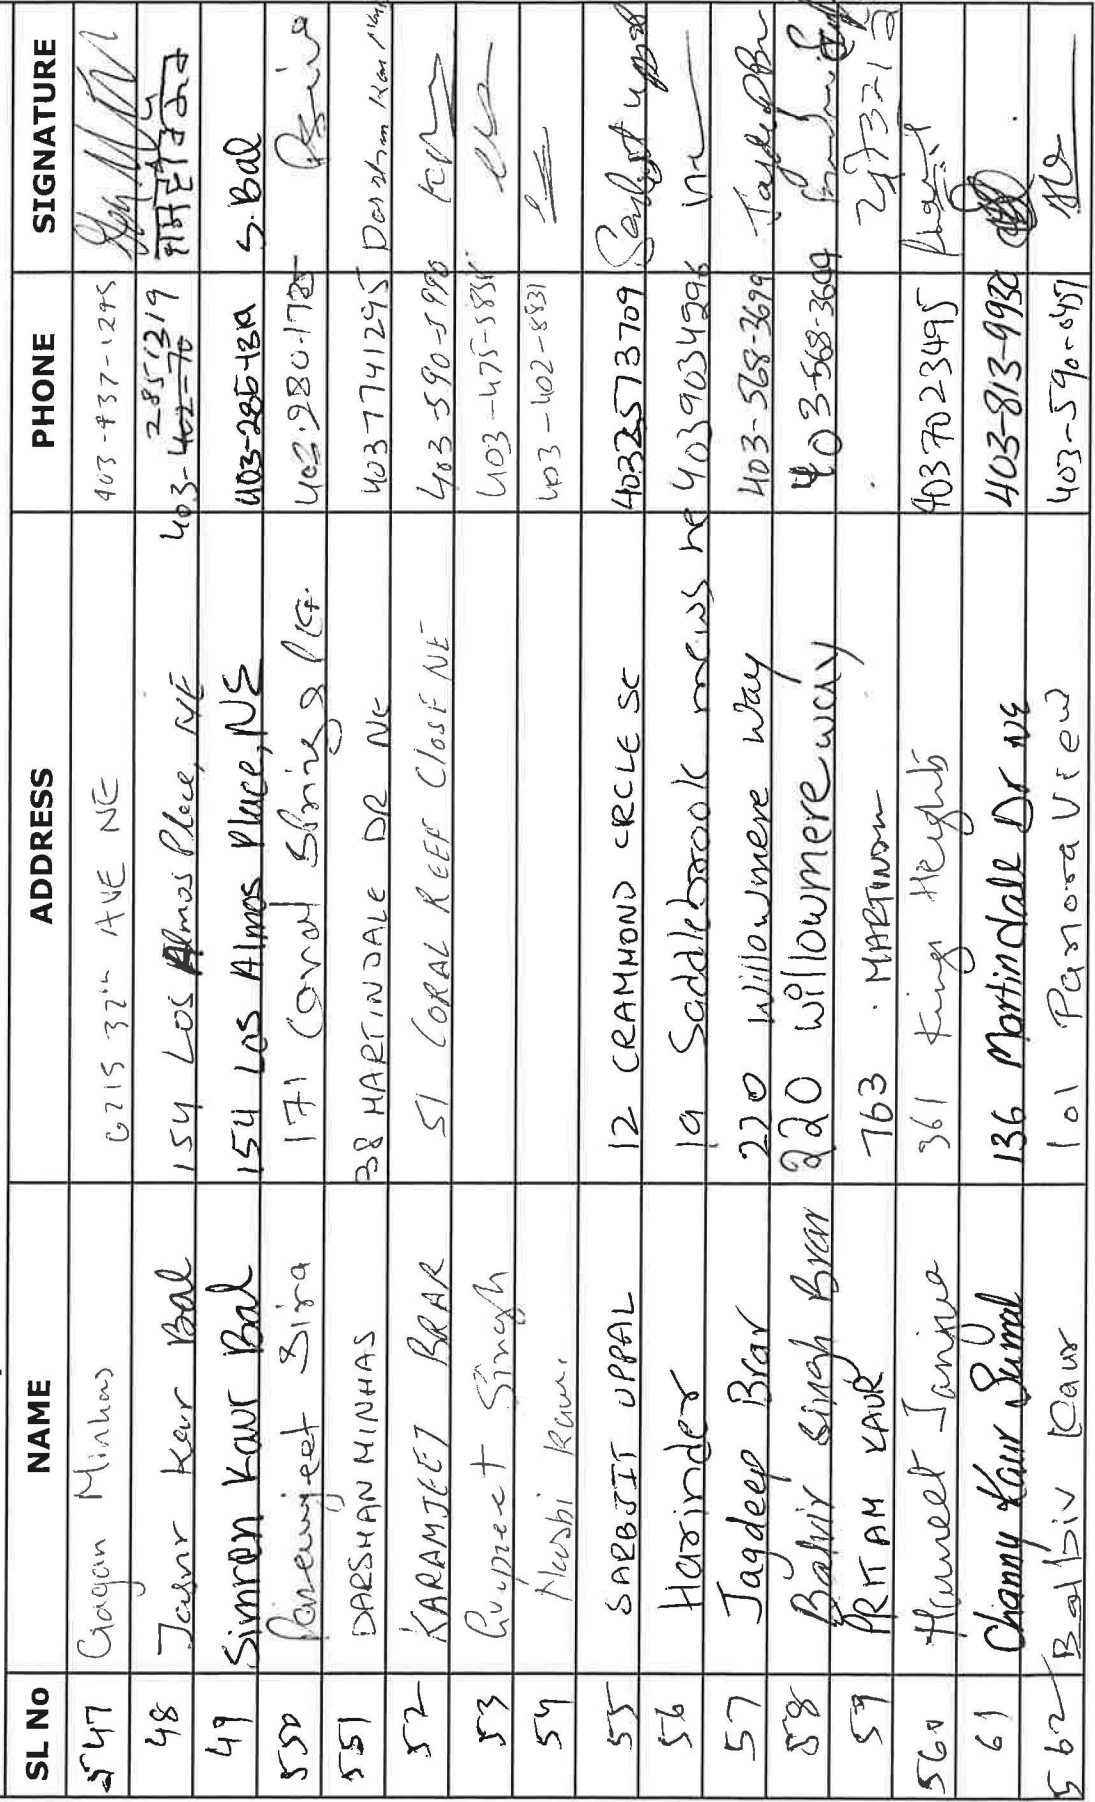 SL No NAME ADDRESS PHONE SIGNATURE
547 Gagan Minhas 6215 32 AVE NE 403-437-1295
48 Kaur Bal 154 LOS Almos Place, NE 403-402-70 2851319
49 Simren Kaur Bal 154 Los Almos Place, NE 403-285-1319 S.Bal
550 Sira 171 Coral Springs 403-280-1725
551 DARSHAN MINHAS 38 MARTINDALE DR NE 403-7741295 Darshan
52 KARAMJEET BRAR 51 CORAL REEF Close NE 403-590-5990
53 Gurpreet Singh 403-475-5838
54 403-402-8831
55 SARBJIT UPPAL 12 CRAMMOND CRCLE SE 4032573709 Sarbjit uppal
56 Harinder 19 Saddlebrook mews ne 4039034296
57 Jagdeep Brar 220 Willowmere Way 403-568-3699
58 Balvir Singh Brar 220 willowmere way 403-568-3609
59 PRITAM KAUR 763
560 Harneet Janjua 361 Kings Heights 4037023495
61 Channy Kaur Sumal 136 Martindale Dr NE 403-813-9930
562 Baldiv Kaur 101 Panorra View 403-590-0457